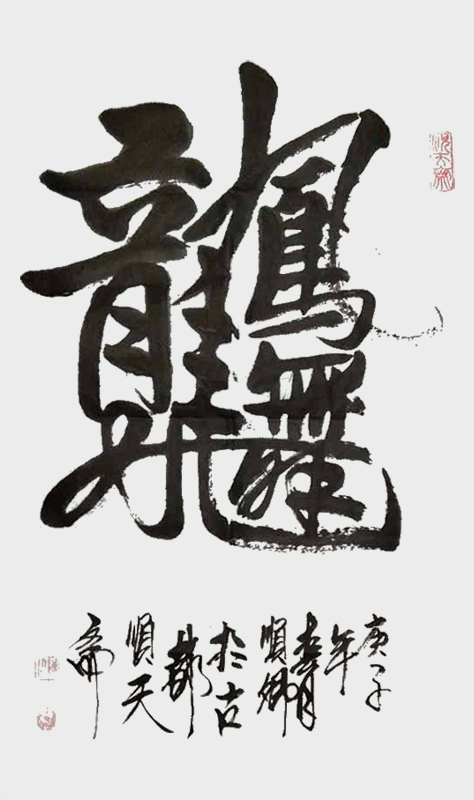 龍飛鳳舞
庚子
年
春月
順卿
於古
都
順天